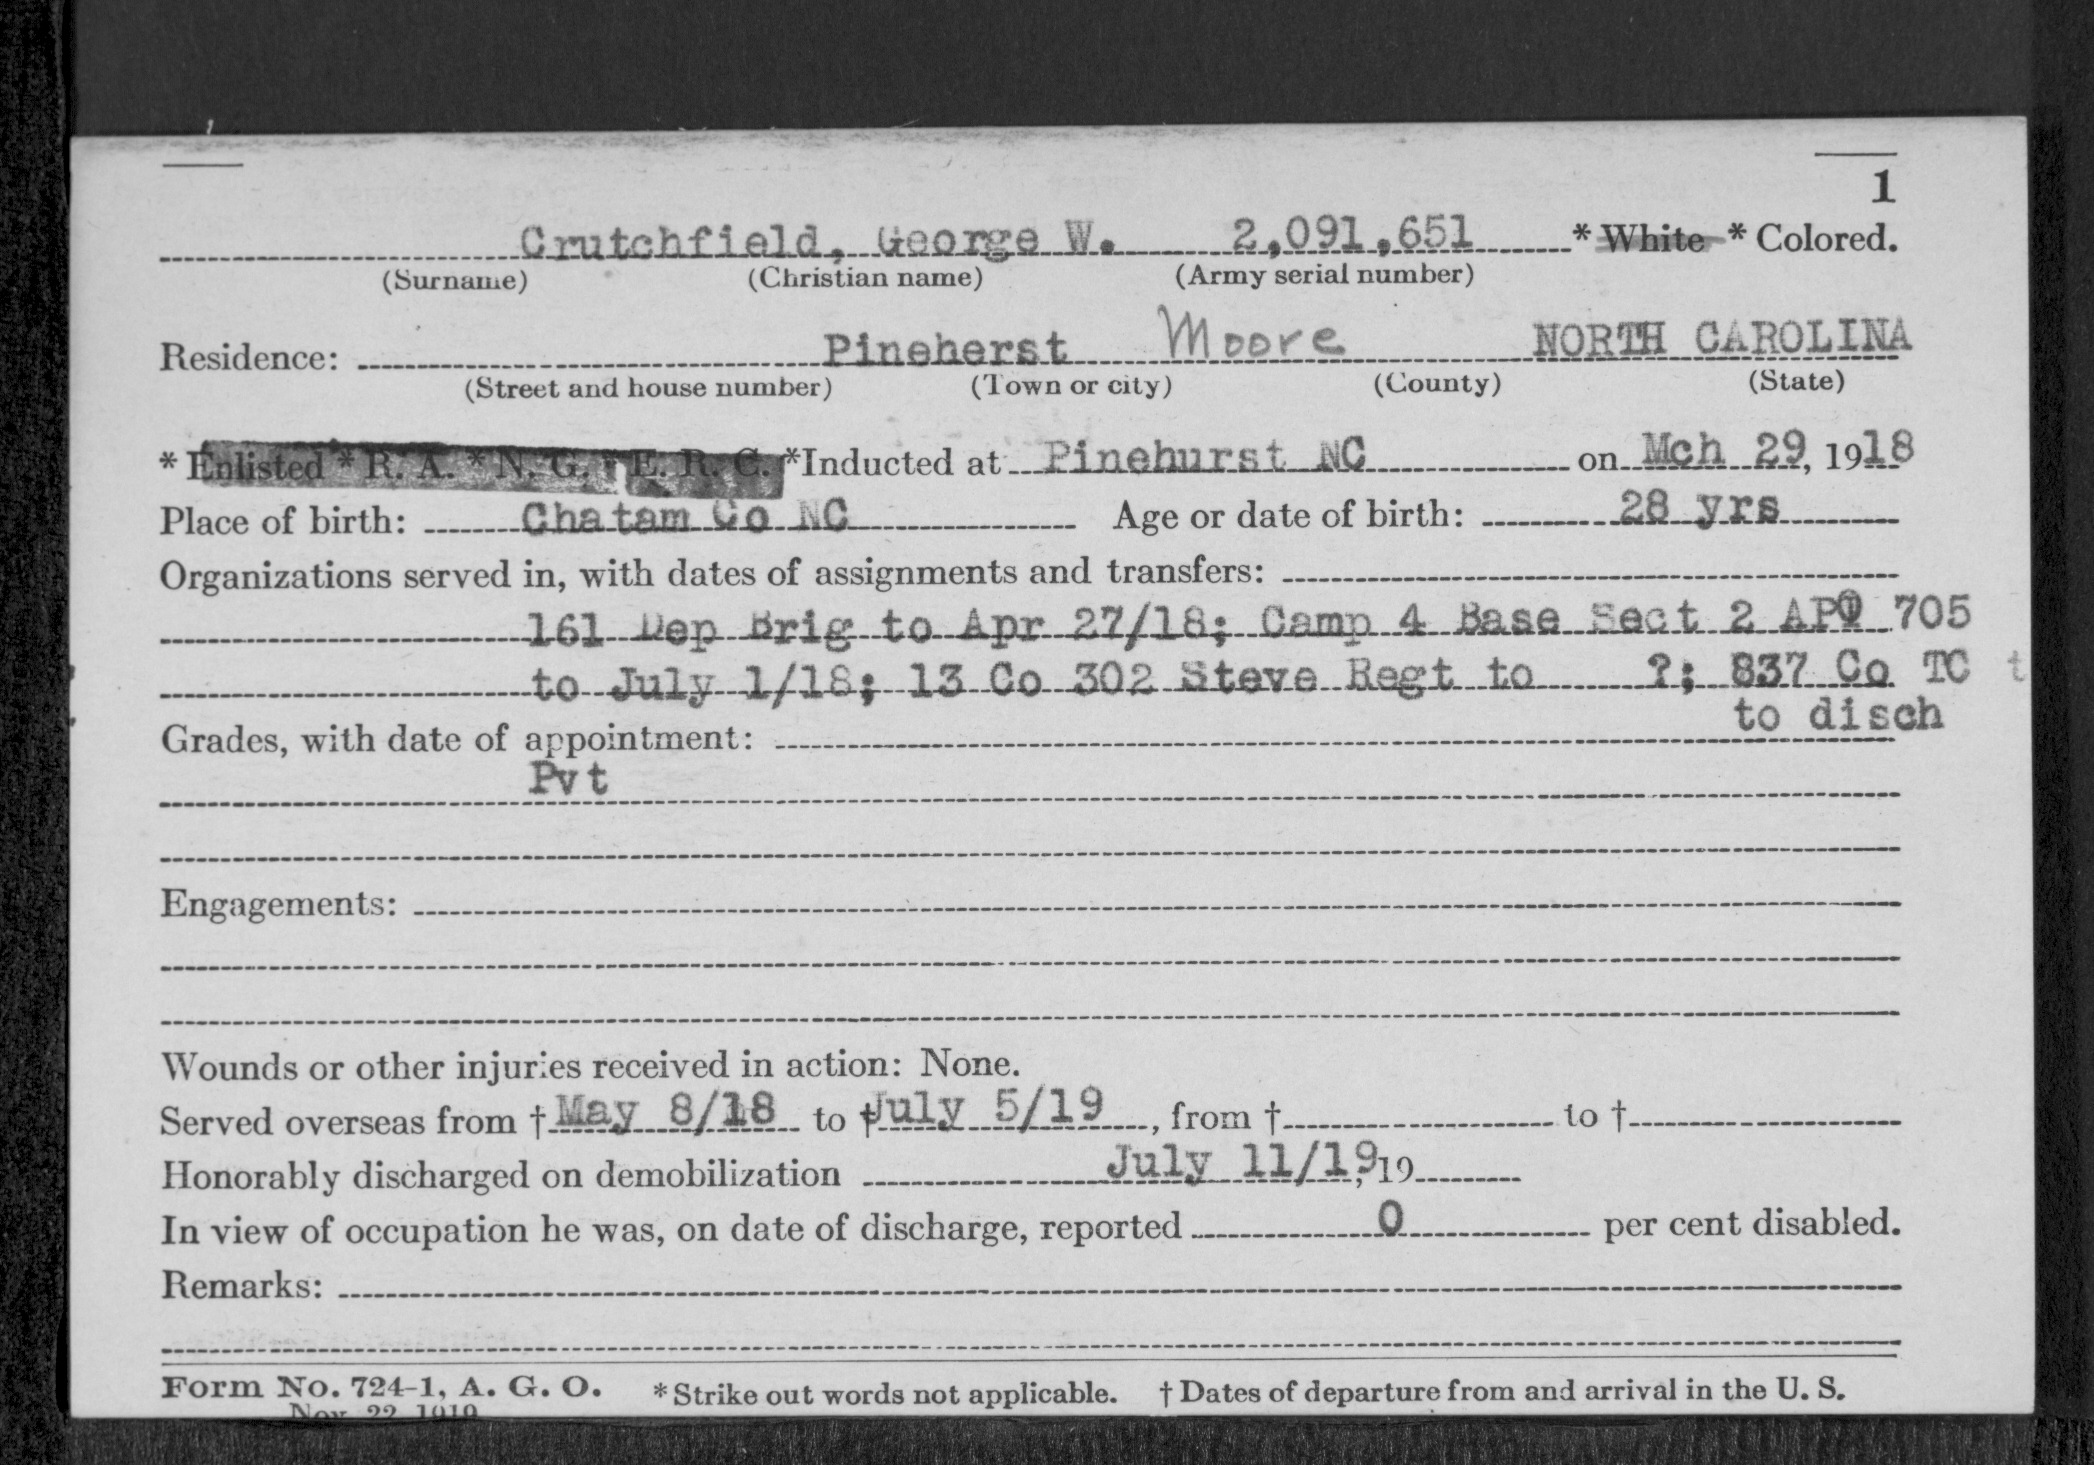 1
Crutchfield, George W. 2,091,651 * White * Colored.
(Surname) (Christian name) (Army serial number)
Residence: Pineherst Moore NORTH CAROLINA
(Street and house number) (Town or city) (County) (State)
* Enlisted * R. A. * N. G. * E. R. C. *Inducted at Pinehurst NC on Mch 29, 1918
Place of birth: Chatam Co NC Age or date of birth: 28 yrs
Organizations served in, with dates of assignments and transfers:
161 Dep Brig to Apr 27/18; Camp 4 Base Sect 2 APO 705
to July 1/18; 13 Co 302 Steve Regt to ?; 837 Co TC t
to disch
Grades, with date of appointment:
Pvt
Engagements:
Wounds or other injuries received in action: None.
Served overseas from † May 8/18 to † July 5/19, from † to †
Honorably discharged on demobilization July 11/19, 19
In view of occupation he was, on date of discharge, reported 0 per cent disabled.
Remarks:
Form No. 724-1, A. G. O. * Strike out words not applicable. † Dates of departure from and arrival in the U. S.
Nov. 22 1919